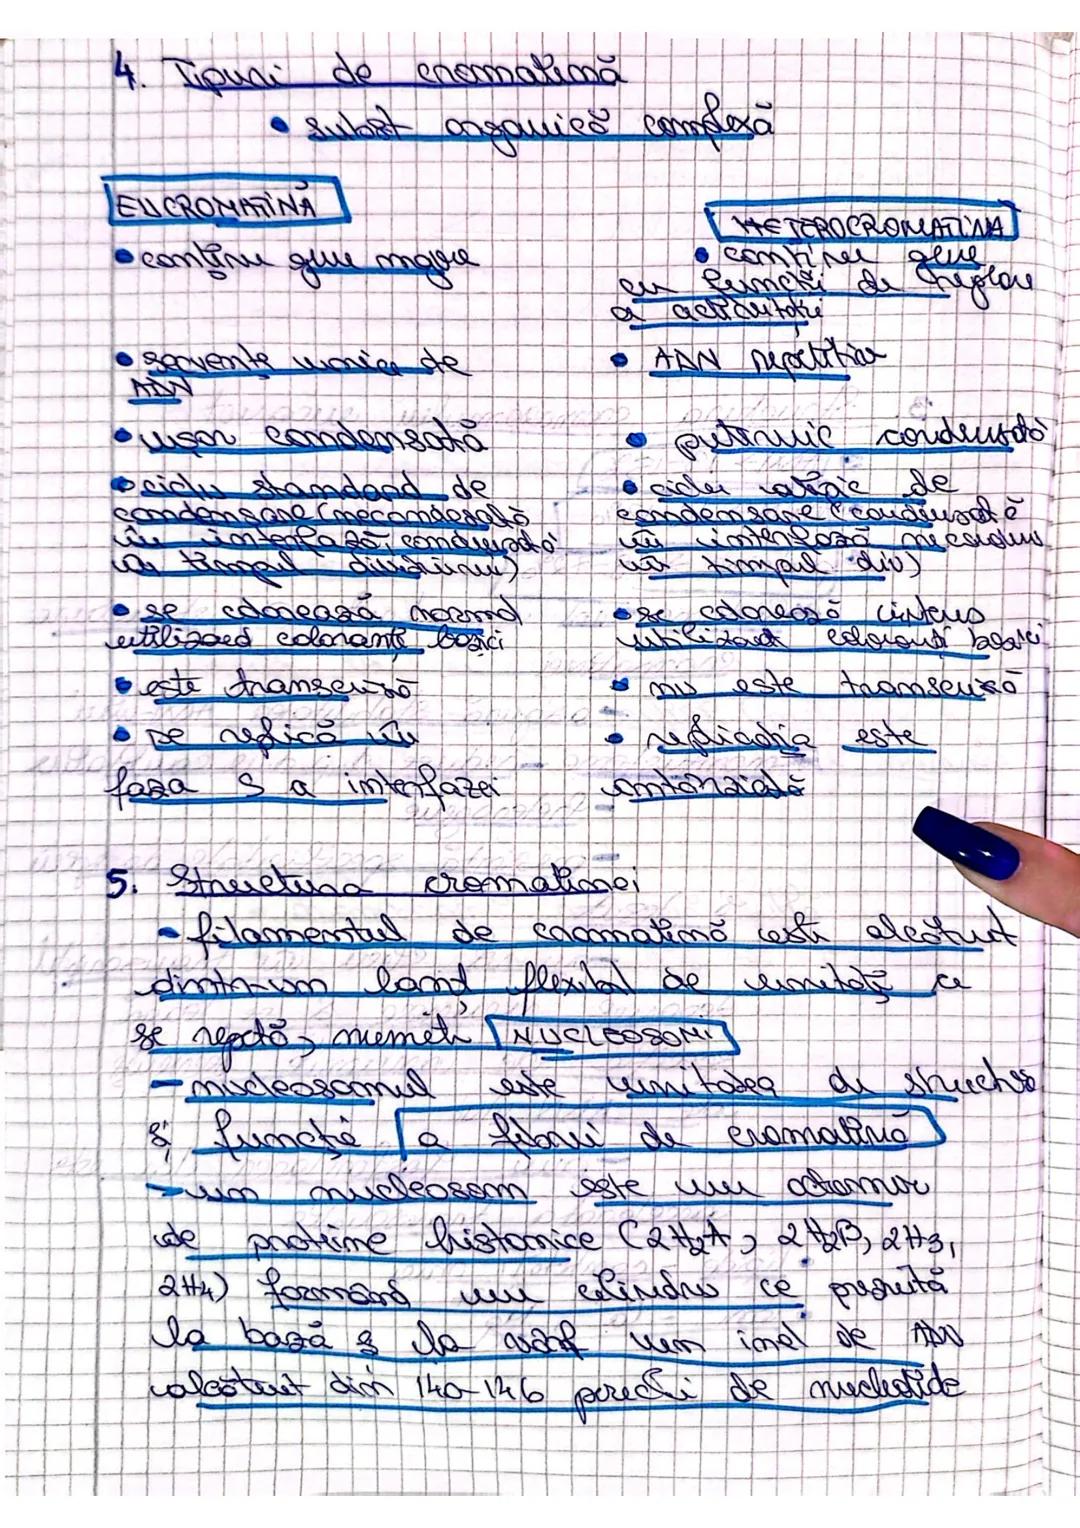 4. Tipuri de cromatină
• subst organică complexă
EUCROMATINĂ
• conține gene majore
• secvențe unice de
ADN
• ușor condensată
• ciclu standard de
condensare (necondesată
în interfază, condensată
în timpul diviziunii)
• se colorează normal
utilizând coloranți bazici
• este transcrisă
• se replică în
faza S a interfazei
HETEROCROMATINA
• conține gene
cu funcții de reglare
a activității
• ADN repetitiv
• puternic condensată
• ciclu atipic de
condensare (condensată
în interfază necondens
în timpul div)
• se colorează intens
utilizând coloranți bazici
• nu este transcrisă
• replicația este
întârziată
5. Structura cromatinei
- filamentul de cromatină este alcătuit
dintr-un lanț flexibil de unități ce
se repetă, numite NUCLEOSOMI
- nucleosomul este unitatea de structură
și funcție a fibrei de cromatină
- un nucleosom este un octomer
de proteine histonice (2H2A, 2H2B, 2H3,
2H4) formând un cilindru ce prezintă
la bază și la vârf un inel de ADN
alcătuit din 140-146 perechi de nucleotide